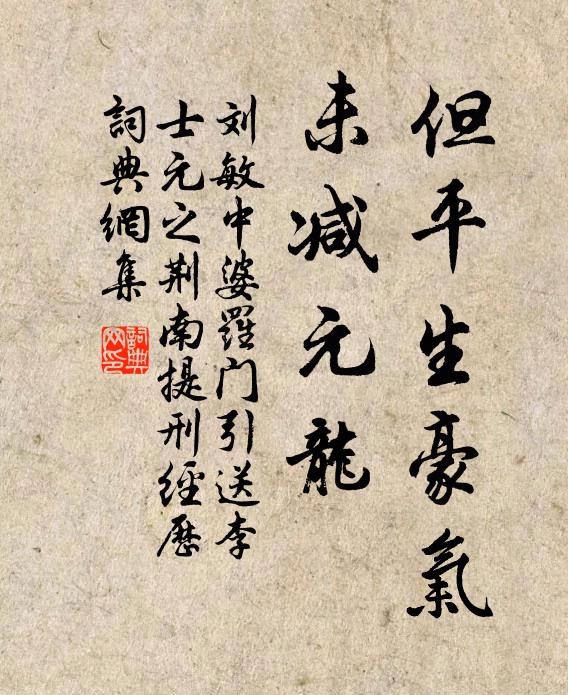 但平生豪氣
未减元龍
刘敏中婆羅门引送李
士元之荆南提刑經歷
詞典網集
詞典网印